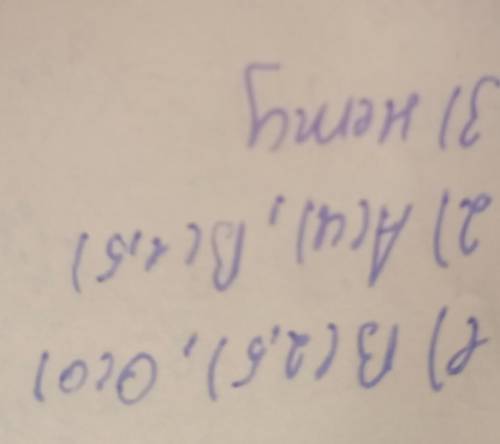 1) B(2,5), O(0)
2) A(4), B(1,5)
3) нету